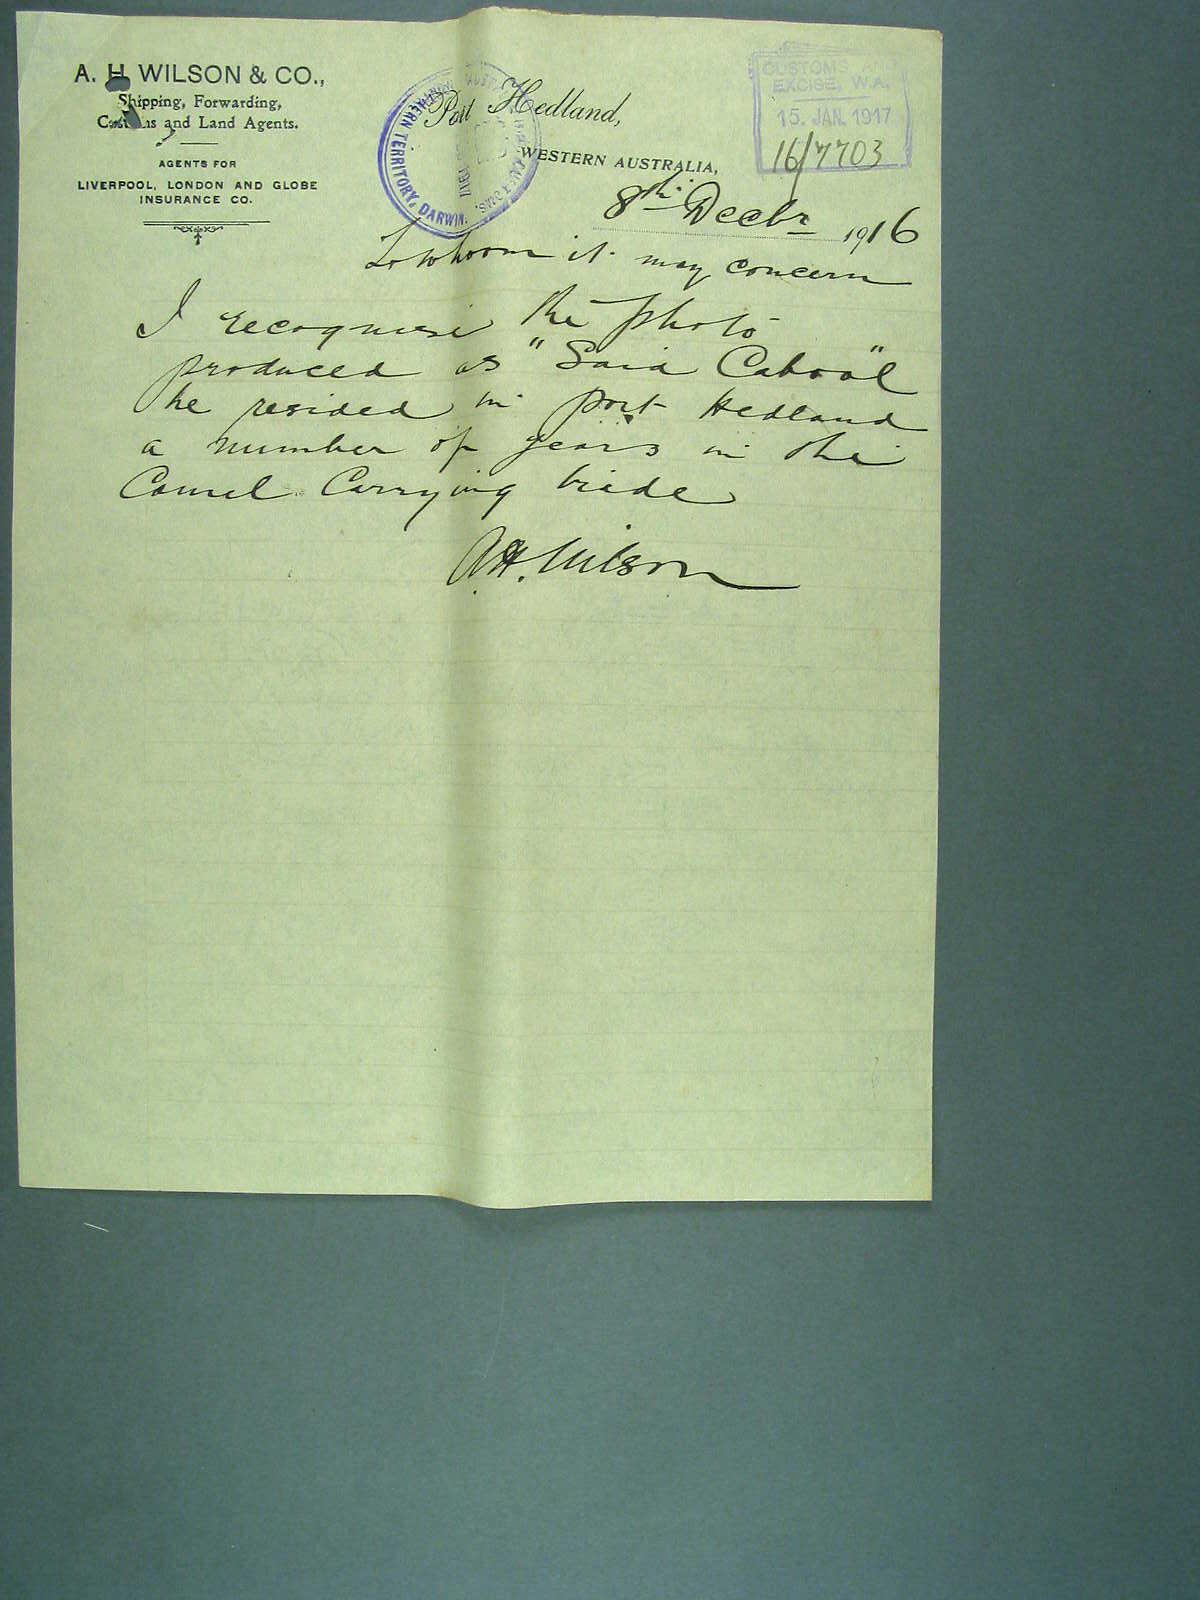 A. H. WILSON & CO.,
Shipping, Forwarding,
Customs and Land Agents.
AGENTS FOR
LIVERPOOL, LONDON AND GLOBE
INSURANCE CO.
NORTHERN TERRITORY, DARWIN.
1917
CUSTOMS AND
EXCISE, W.A.
15. JAN. 1917
16/7703
Port Hedland,
WESTERN AUSTRALIA,
8th Decbr 1916
To whom it may concern
I recognise the photo
produced as "Said Cabool"
he resided in port Hedland
a number of years in the
Camel Carrying trade
A.H. Wilson